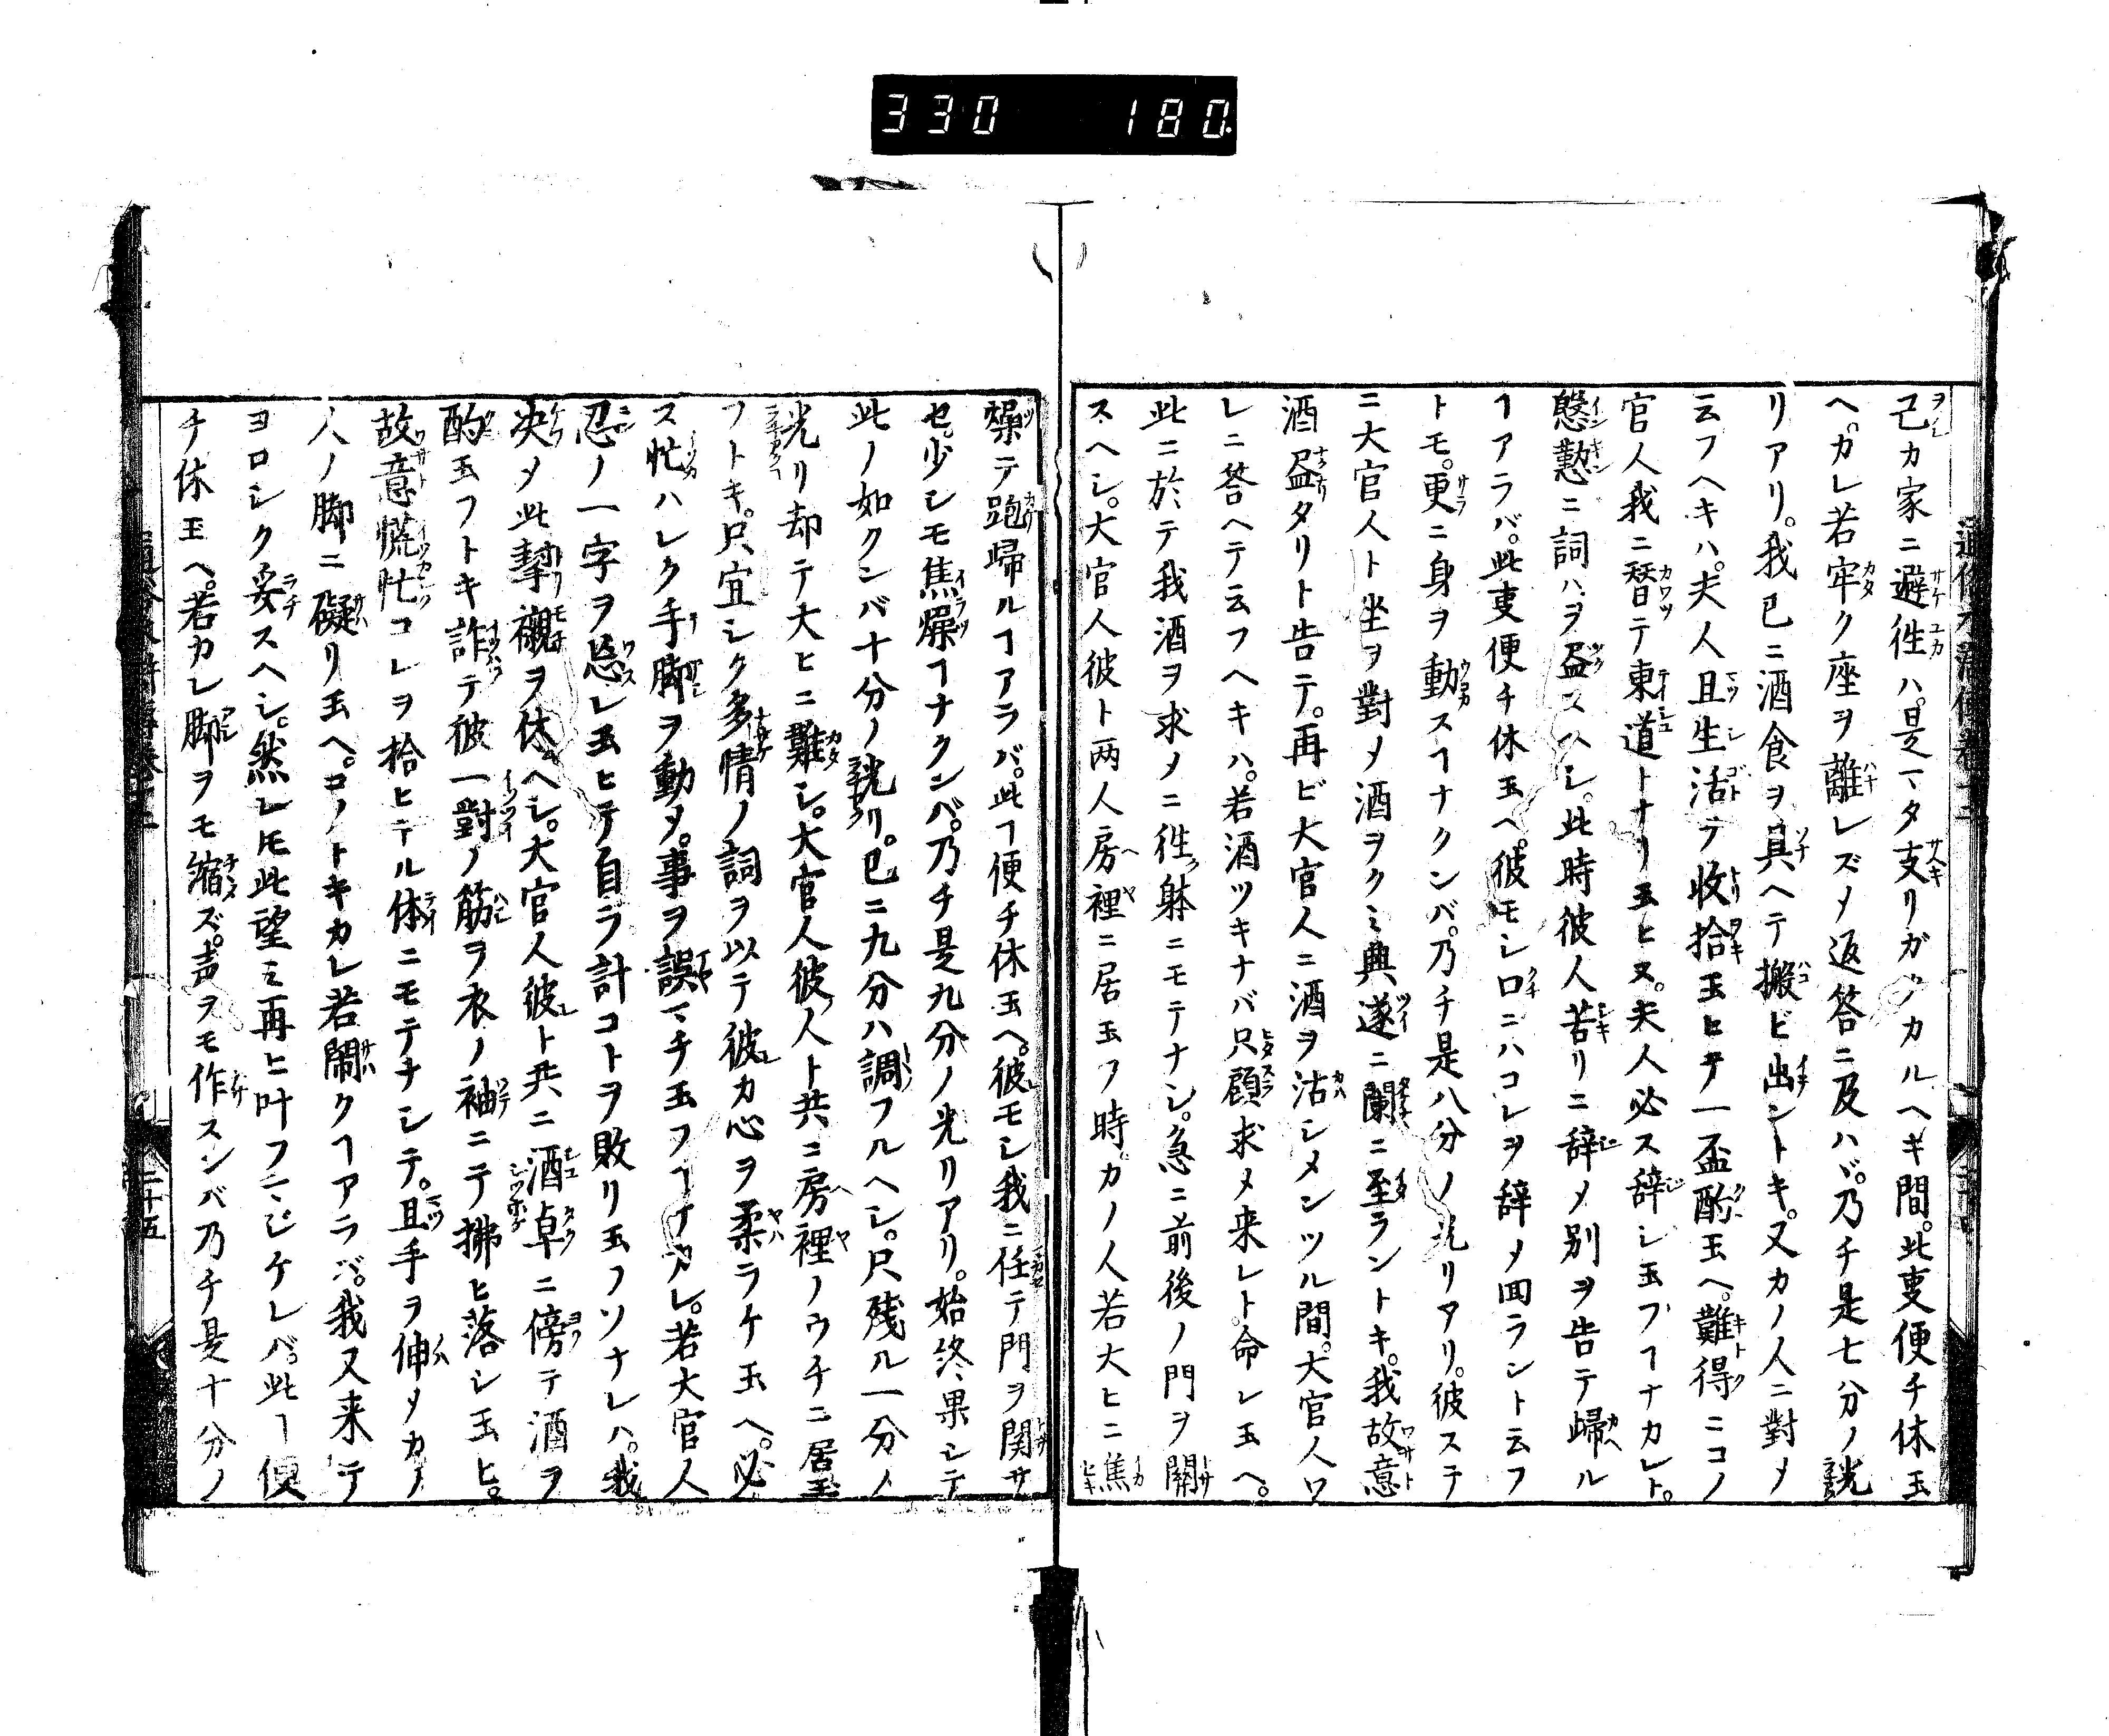 330 180
己カ家ニ避徃ハ。是マタ支リガタカルヘキ間。此叓便チ休玉
ヘ。カレ若牢ク座ヲ離レズメ返答ニ及ハヾ。乃チ是七分ノ詵
リアリ。我已ニ酒食ヲ具ヘテ搬ビ出ントキ。又カノ人ニ對メ
云フヘキハ。夫人且生活テ收拾玉ヒテ一盃酌玉ヘ。難得ニコノ
官人我ニ替テ東道トナリ玉ヒヌ。夫人必ス辞シ玉フヿナカレト。
慇懃ニ詞ハヲ盡スヘシ。此時彼人苦リニ辞メ別ヲ告テ歸ル
ヿアラバ。此叓便チ休玉ヘ。彼モシ口ニハコレヲ辞メ回ラント云フ
トモ。更ニ身ヲ動スヿナクンバ。乃チ是八分ノ光リアリ。彼ステ
ニ大官人ト坐ヲ對メ酒ヲクミ興遂ニ闌ニ至ラントキ。我故意
酒盡タリト告テ。再ビ大官人ニ酒ヲ沽シメンツル間。大官人ワ
レニ答ヘテ云フヘキハ。若酒ツキナバ只顧求メ来レト命レ玉ヘ。
此ニ於テ我酒ヲ求メニ徃躰ニモテナシ。急ニ前後ノ門ヲ關
スヘシ。大官人彼ト两人房裡ニ居玉フ時カノ人若大ヒニ焦
燥テ跑歸ルヿアラバ。此ヿ便チ休玉ヘ。彼モシ我ニ任テ門ヲ関サ
セ。少シモ焦燥ヿナクンバ。乃チ是九分ノ光リアリ。始終果シテ
此ノ如クンバ十分ノ詵リ。已ニ九分ハ調フルヘシ。只残ル一分ノ
光リ却テ大ヒニ難シ。大官人彼人ト共ニ房裡ノウチニ居玉
フトキ。只宜シク多情ノ詞ヲ以テ彼カ心ヲ柔ラケ玉ヘ。必
ス忙ハレク手脚ヲ動メ。事ヲ誤マチ玉フヿナカレ。若大官人
忍ノ一字ヲ忘レ玉ヒテ自ラ計コトヲ敗リ玉フソナレハ。我
决メ此摯襯ヲ休ヘシ。大官人彼ト共ニ酒卓ニ傍テ酒ヲ
酌玉フトキ詐テ彼一對ノ筋ヲ衣ノ袖ニテ拂ヒ落シ玉ヒ。
故意慌忙コレヲ拾ヒテル体ニモテナシテ。且手ヲ伸メカノ
人ノ脚ニ礙リ玉ヘ。コノトキカレ若鬧クヿアラバ。我又来テ
ヨロシク妥スヘシ。然レ𪜈此望ミ再ヒ叶フマシケレバ。此ヿ便
チ休玉ヘ。若カレ脚ヲモ縮ズ。声ヲモ作スンバ乃チ是十分ノ
二十五